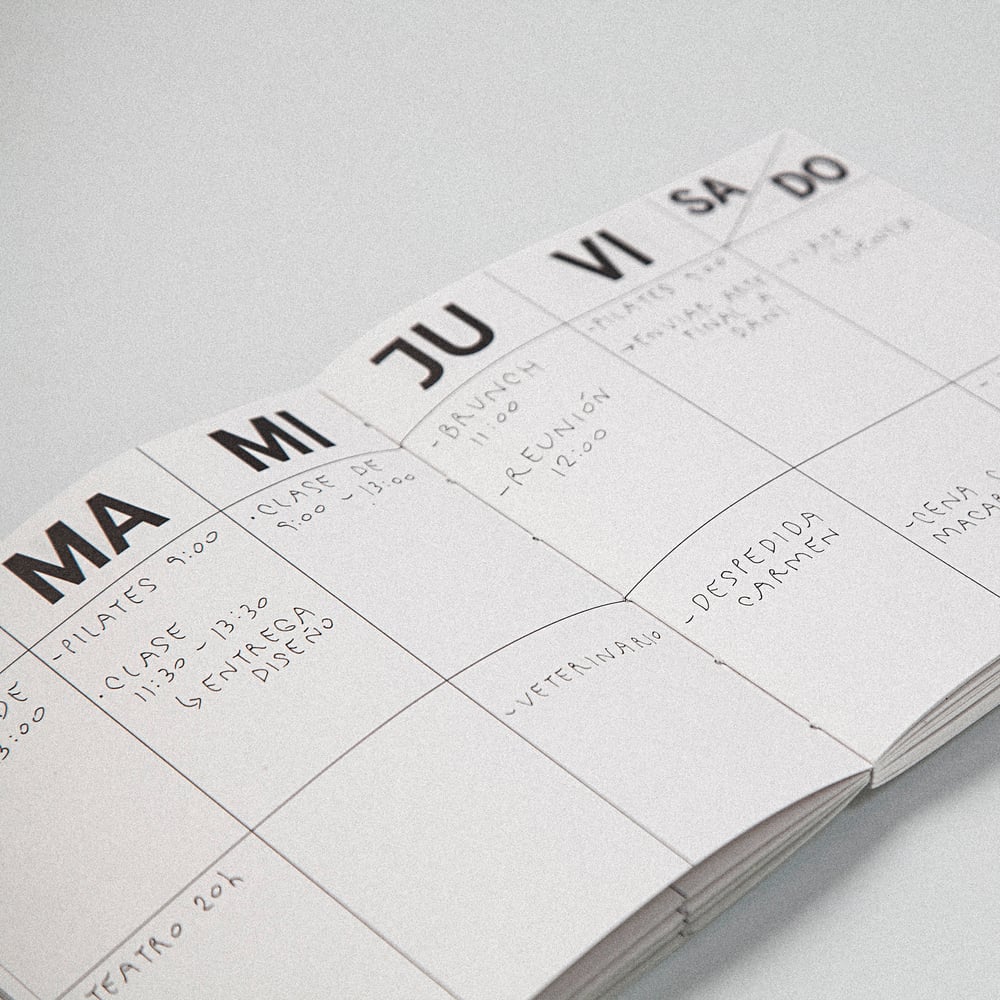 MA
MI
JU
VI
SA
DO
DE
3:00
-PILATES 9:00
·CLASE
11:30 - 13:30
↳ ENTREGA
DISEÑO
·CLASE DE
9:00 - 13:00
-BRUNCH
11:00
-REUNIÓN
12:00
-PILATES
→ENVIAR ARTE
FINAL A
DANI
TEATRO 20h
-VETERINARIO
-DESPEDIDA
CARMEN
-CENA
MACAR